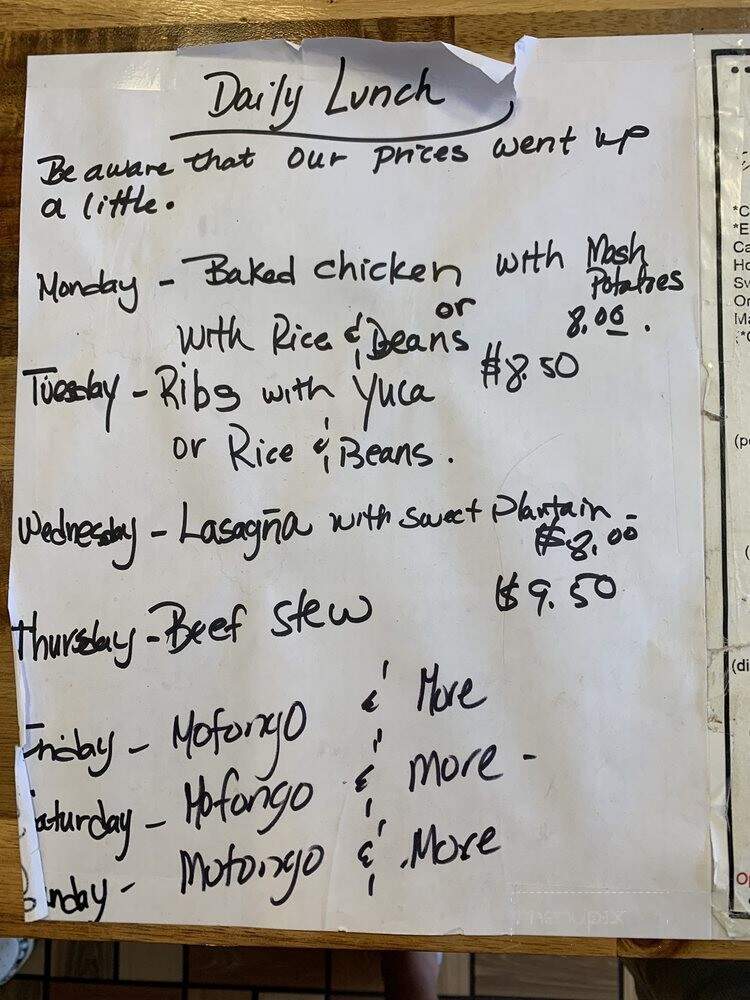 Daily Lunch
Be aware that our prices went up
a little.
Monday - Baked chicken with Mash
Potatoes
or
8.00.
with Rice & Beans
$8.50
Tuesday - Ribs with Yuca
or Rice & Beans.
Wednesday - Lasagña with sweet Plantain -
$8.00
$9.50
Thursday - Beef stew
Friday - Mofongo & More
aturday - Mofongo & more -
unday - Mofongo & .More
menupix
*C
*E
Ca
Ho
Sw
On
Ma
(pe
(di
Op